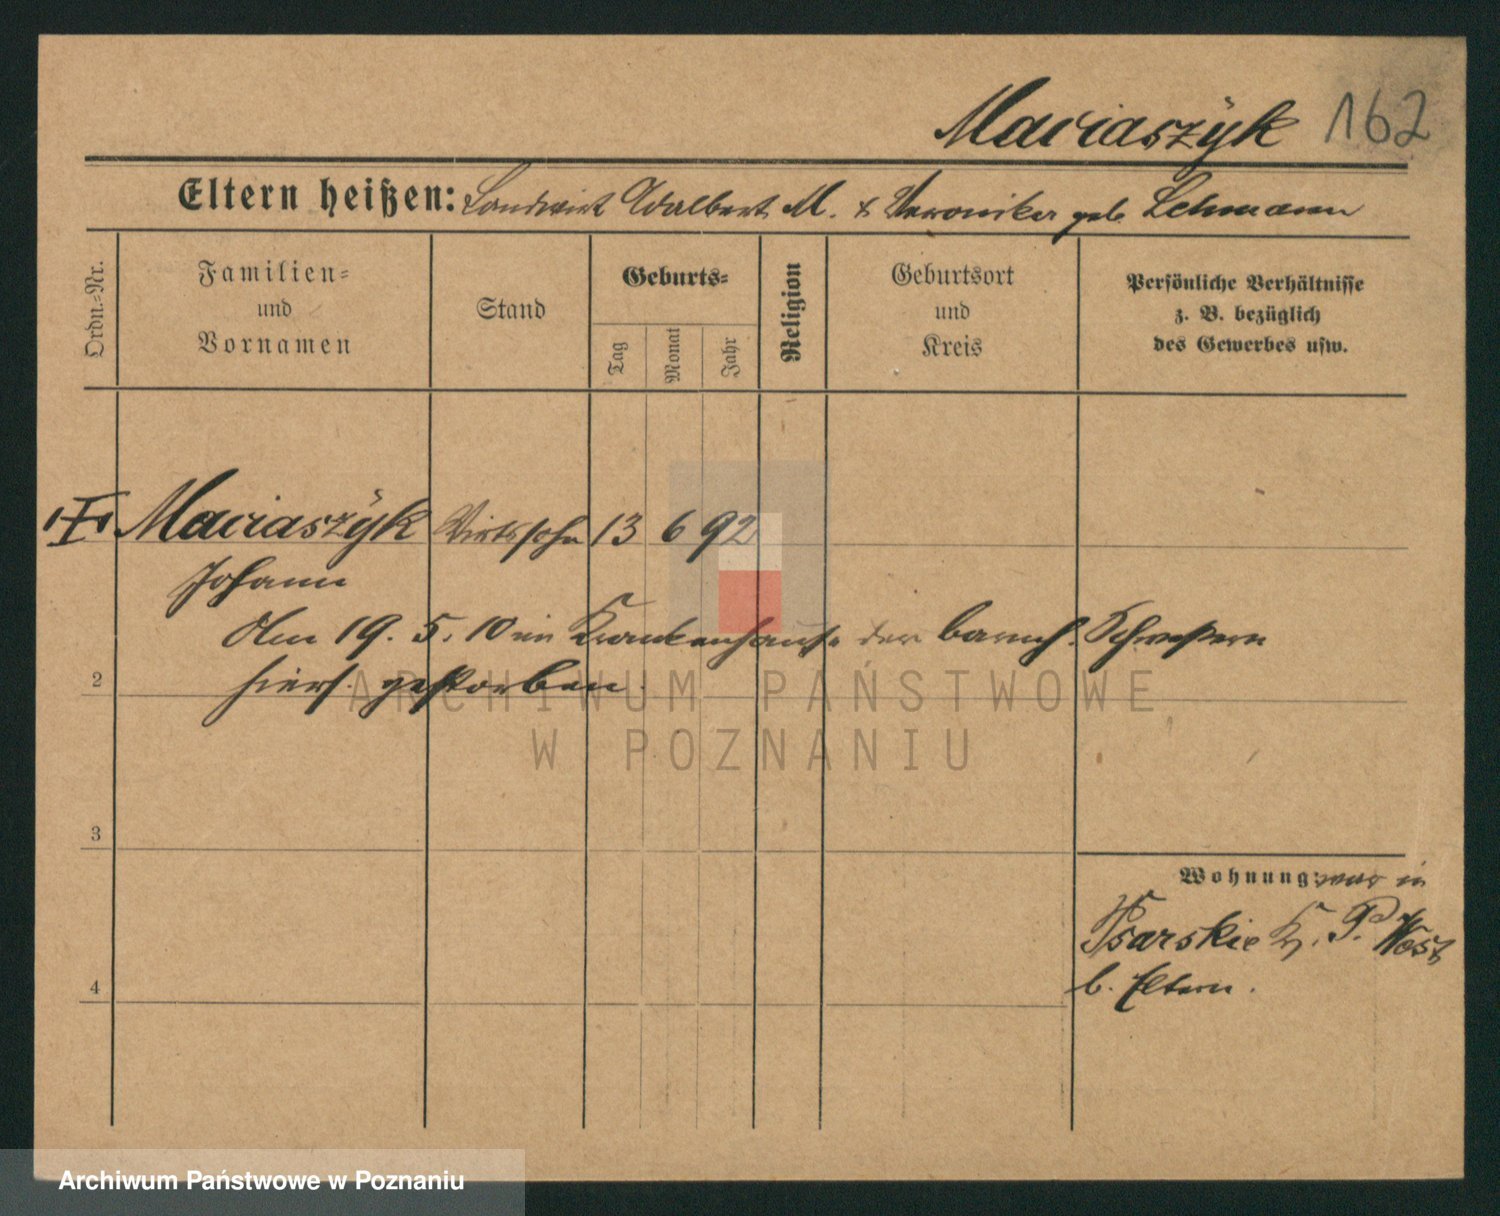 Maciaszÿk 162
Eltern heißen: Landwirt Adalbert M. & Veronika geb. Lehmann
Ordn=Nr.
Familien=
und
Vornamen
Stand
Geburts=
Tag
Monat
Jahr
Religion
Geburtsort
und
Kreis
Persönliche Verhältnisse
z. B. bezüglich
des Gewerbes usw.
1 Maciaszÿk Wirtssohn 13 6 92
Johann
Am 19. 5. 10 im Krankenhause der barmh. Schwestern
2 hiers. gestorben.
ARCHIWUM PAŃSTWOWE
W POZNANIU
3
Wohnung: war in
Psarskie Kr. P. West
4 b. Eltern.
Archiwum Państwowe w Poznaniu